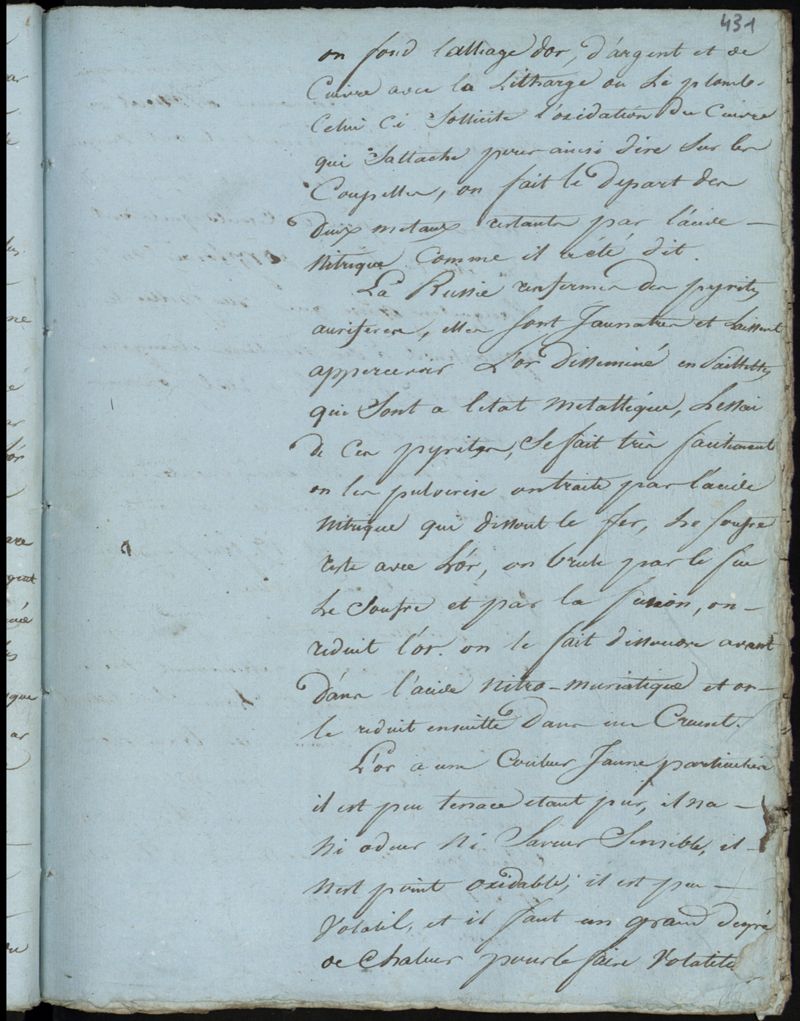 431
on fond l'alliage d'or, d'argent et de
Cuivre avec la Litharge ou Le plomb.
Celui Ci Sollicite l'oxidation du Cuivre
qui S'attache pour ainsi dire Sur les
Coupelles, on fait le Depart des
deux metaux restants par l'acide —
Nitrique Comme il a été dit.
La Russie renferme des pyrites
auriferes, elles Sont Jaunatres et Laissent
appercevoir L'or disseminé en Paillettes
qui Sont a l'etat metallique, L'essai
de Ces pyrites, Se fait très facilement
on les pulverise on traite par l'acide
nitrique qui dissout le fer, Le Soufre
reste avec L'or, on brule par le feu
Le Soufre et par la fusion, on —
reduit l'or. on le fait dissoudre avant
dans l'acide Nitro-muriatique et on —
le reduit ensuitte dans un Creuset.
L'or a une Couleur Jaune particuliere
il est peu tenace etant pur, il n'a —
Ni odeur Ni Saveur Sensible, il —
N'est point oxidable; il est peu —
Volatil, et il faut un grand degré
de Chaleur pour le faire Volatile